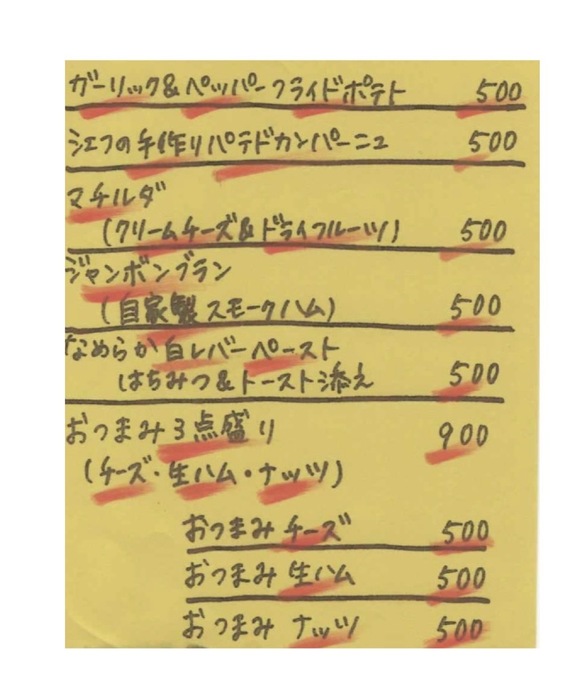 ガーリック&ペッパーフライドポテト 500
シェフの手作りパテドカンパーニュ 500
マチルダ
(クリームチーズ&ドライフルーツ) 500
ジャンボンブラン
(自家製スモークハム) 500
なめらか白レバーペースト
はちみつ&トースト添え 500
おつまみ3点盛り 900
(チーズ・生ハム・ナッツ)
おつまみチーズ 500
おつまみ生ハム 500
おつまみナッツ 500